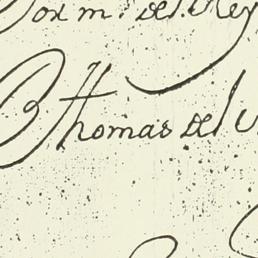 Por m.º del Rey
Thomas del